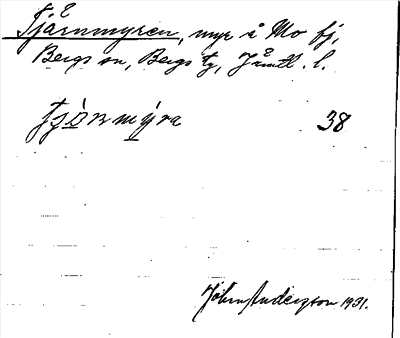 Tjårnmyren, myr å Mo fj,
Bergs sn, Bergs tg, Jämtl. l.
tjònmýra 38
John Anderzon 1931.